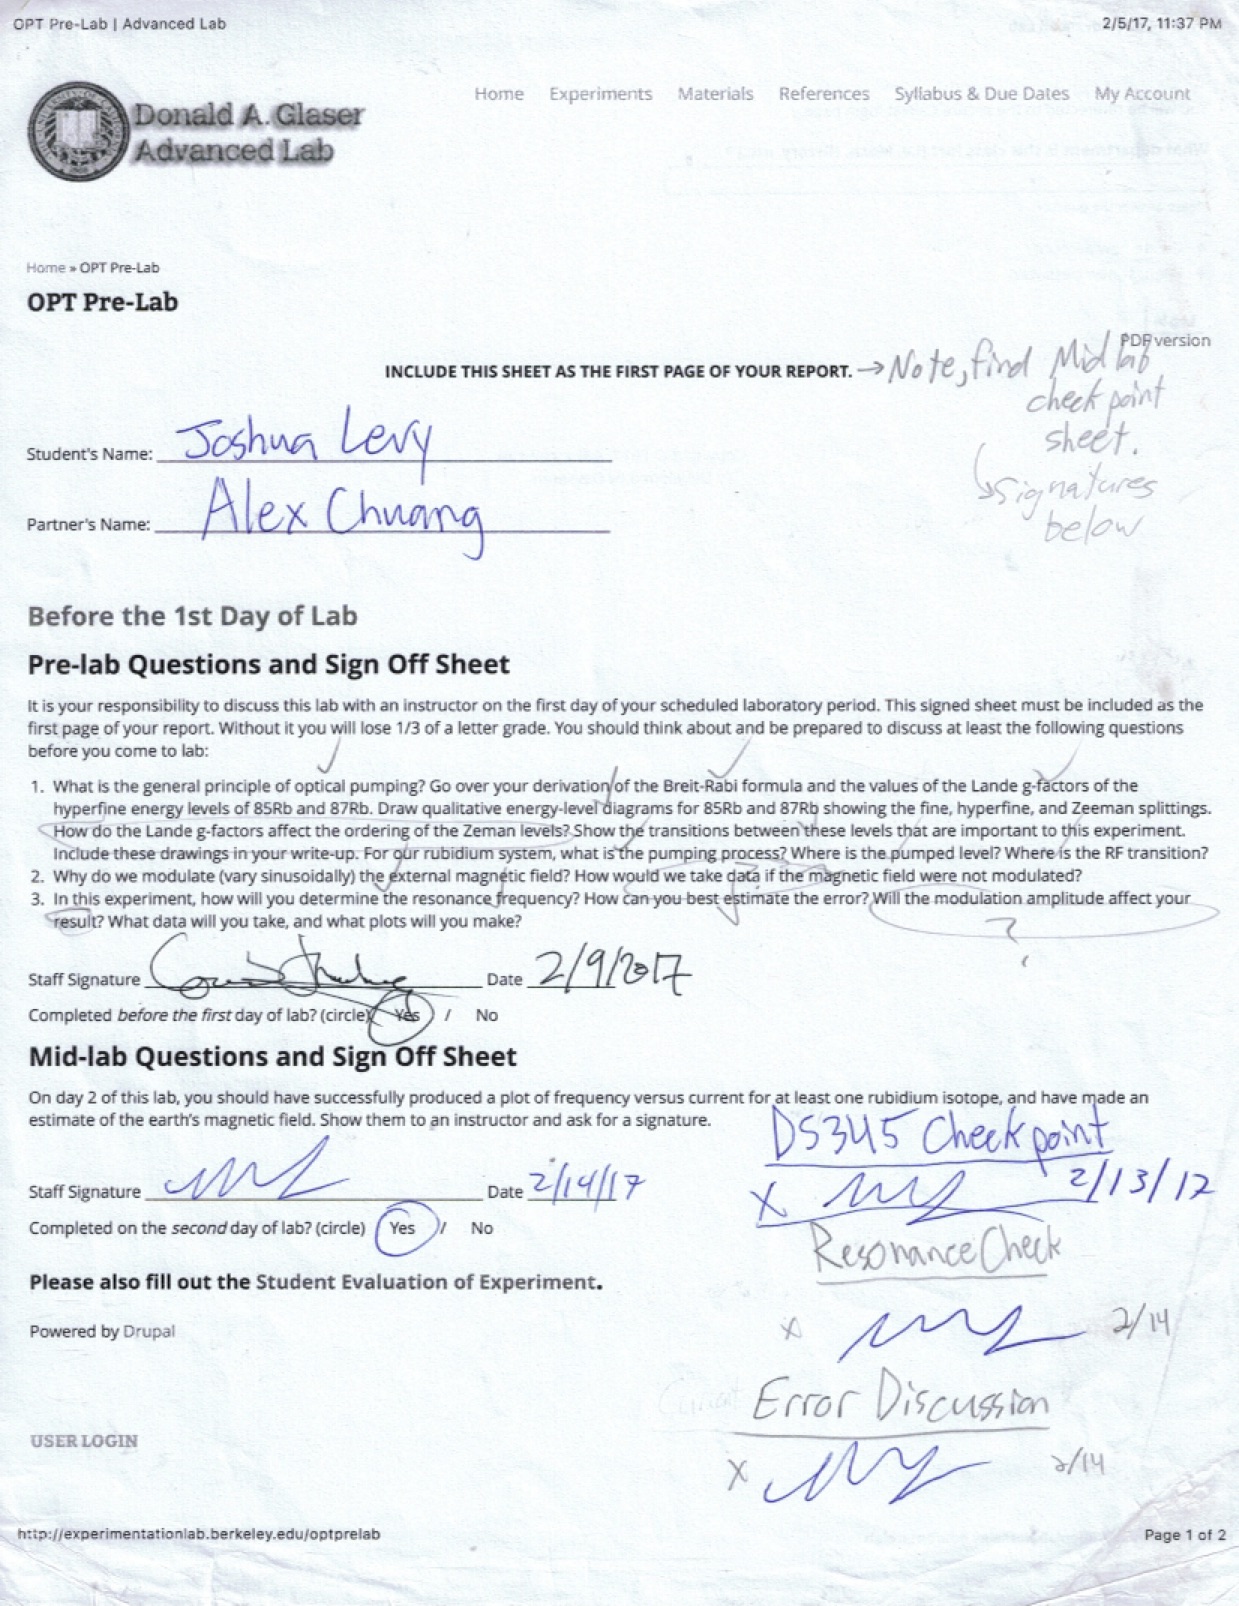 OPT Pre-Lab | Advanced Lab
2/5/17, 11:37 PM
Donald A. Glaser
Advanced Lab
Home Experiments Materials References Syllabus & Due Dates My Account
Home » OPT Pre-Lab
OPT Pre-Lab
PDF version
INCLUDE THIS SHEET AS THE FIRST PAGE OF YOUR REPORT. → Note, find Mid lab
check point
sheet.
signatures
below
Student's Name: Joshua Levy
Partner's Name: Alex Chuang
Before the 1st Day of Lab
Pre-lab Questions and Sign Off Sheet
It is your responsibility to discuss this lab with an instructor on the first day of your scheduled laboratory period. This signed sheet must be included as the
first page of your report. Without it you will lose 1/3 of a letter grade. You should think about and be prepared to discuss at least the following questions
before you come to lab:
1. What is the general principle of optical pumping? Go over your derivation of the Breit-Rabi formula and the values of the Lande g-factors of the
hyperfine energy levels of 85Rb and 87Rb. Draw qualitative energy-level diagrams for 85Rb and 87Rb showing the fine, hyperfine, and Zeeman splittings.
How do the Lande g-factors affect the ordering of the Zeman levels? Show the transitions between these levels that are important to this experiment.
Include these drawings in your write-up. For our rubidium system, what is the pumping process? Where is the pumped level? Where is the RF transition?
2. Why do we modulate (vary sinusoidally) the external magnetic field? How would we take data if the magnetic field were not modulated?
3. In this experiment, how will you determine the resonance frequency? How can you best estimate the error? Will the modulation amplitude affect your
result? What data will you take, and what plots will you make?
?
Staff Signature Date 2/9/2017
Completed before the first day of lab? (circle) Yes / No
Mid-lab Questions and Sign Off Sheet
On day 2 of this lab, you should have successfully produced a plot of frequency versus current for at least one rubidium isotope, and have made an
estimate of the earth's magnetic field. Show them to an instructor and ask for a signature.
DS345 Checkpoint
Staff Signature Date 2/14/17
X 2/13/17
Completed on the second day of lab? (circle) Yes / No
Resonance Check
Please also fill out the Student Evaluation of Experiment.
Powered by Drupal
X 2/14
Error Discussion
USER LOGIN
X 2/14
http://experimentationlab.berkeley.edu/optprelab
Page 1 of 2